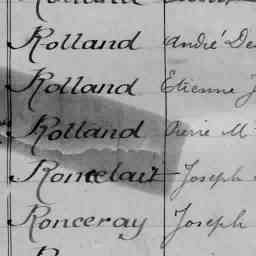 Rolland André
Rolland Etienne
Rolland Pierre M
Roncelait Joseph
Ronceray Joseph